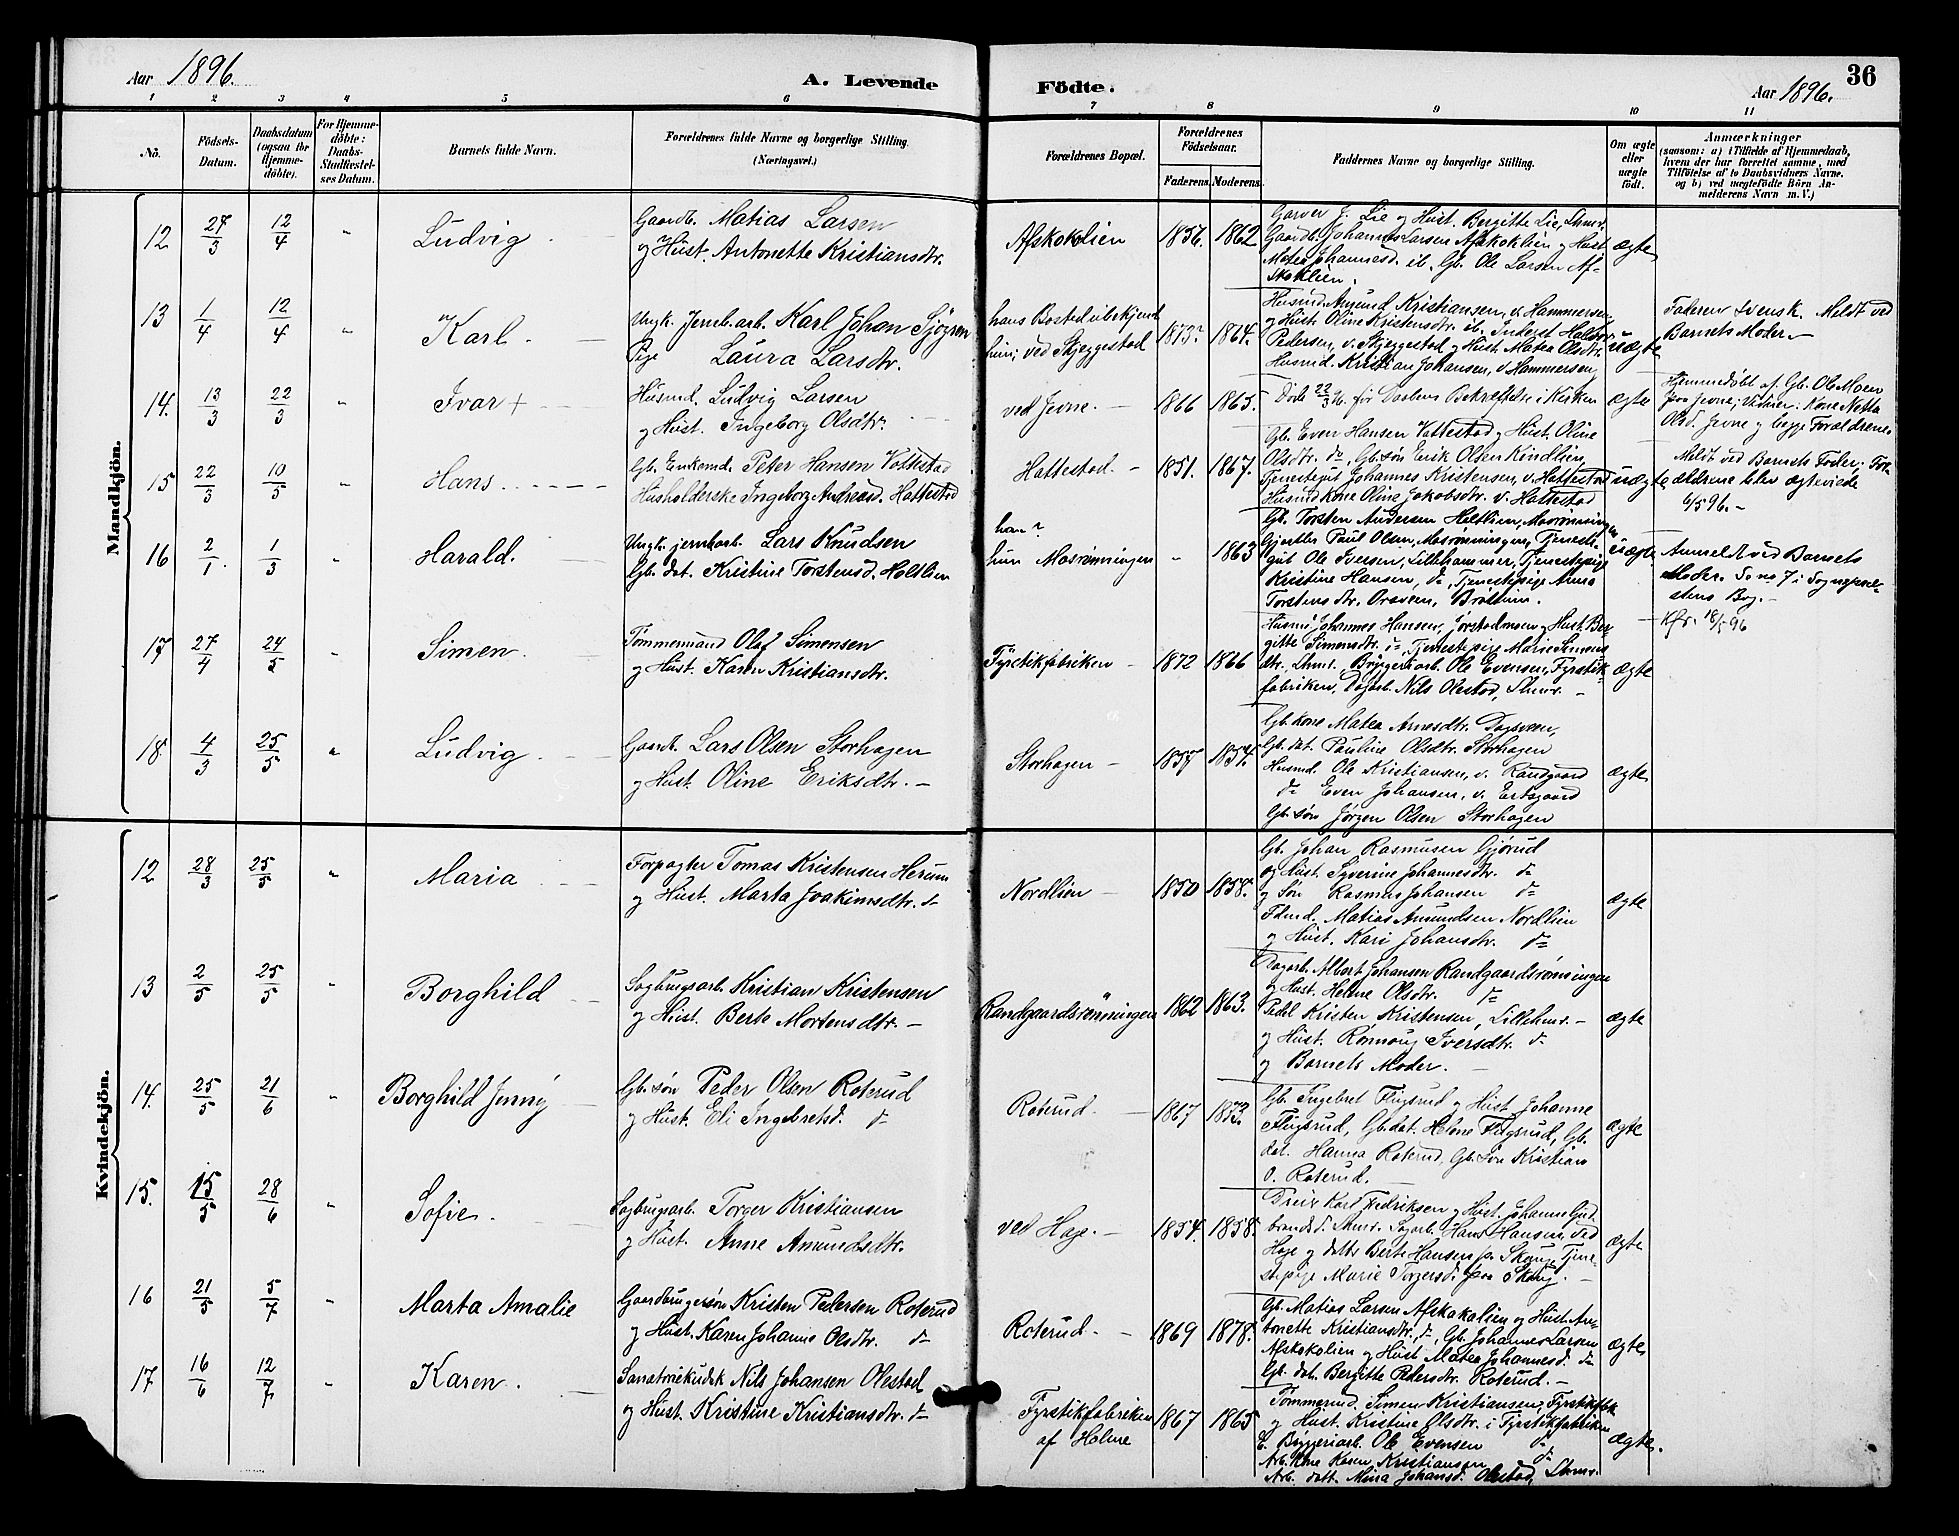 Aar 1896.
A. Levende
Födte.
Aar 1896.
36
1 2 3 4 5 6 7 8 9 10 11
No.
Födsels-
Datum.
Daabsdatum
(ogsaa for
Hjemme-
döbte).
For Hjemme-
döbte:
Daabs-
Stadfæstel-
ses Datum.
Barnets fulde Navn.
Forældrenes fulde Navne og borgerlige Stilling
(Næringsvei.)
Forældrenes Bopæl.
Forældrenes
Födselsaar.
Faderens. Moderens.
Faddernes Navne og borgerlige Stilling.
Om ægte
eller
uægte
födt.
Anmærkninger
(saasom: a) i Tilfælde af Hjemmedaab,
hvem der har forrettet samme, med
Tilföielse af to Daabsvidners Navne.
og b) ved uægtefödte Börn An-
melderens Navn m. V.)
Mandkjön.
12 27/3 12/4 " Ludvig
Gaardb. Matias Larsen
og Hust. Antonette Kristiansdtr.
Afskoklien 1856. 1862
Garver J. Lie og Hust. Bergitte Lie, Lhmr.
Gaardb. Johannes Larsen Afskoklien og Hust.
Matea Johannesd. ib. Gb. Ole Larsen Af-
skoklien.
ægte
13 1/4 12/4 " Karl.
Ungk. Jernb.arb. Karl Johan Sjögren
Pige Laura Larsdtr.
hans Bosted ubekjendt
hun; ved Skjeggestad 1873? 1864.
Husmd. Amund Kristiansen, v. Hammersen
og Hust. Oline Kristensdtr. ib. Inderst Halvor
Pedersen, v. Skjeggestad og Hust. Matea Olsdtr.
Husmd. Kristian Johansen, v. Hammersen
uægte
Faderen Svensk. Meldt ved
Barnets Moder.
14. 13/3 22/3 " Ivar +
Husmd. Ludvig Larsen
og Hust. Ingeborg Olsdtr.
ved Jevne. 1866 1865.
Döde 22/3 96 för Daabens Bekræftelse i Kirken
ægte
Hjemmedöbt af Gb. Ole Moen
paa Jevne; Vidner: Kone Netta
Olsd. Jevne og begge Forældrene.
15 22/3 10/5 " Hans
Gb. Enkemd. Peter Hansen Vottestad
Husholderske Ingeborg Andreasd. Hattestad
Hattestad. 1851. 1867.
Gb. Even Hansen Vattestad og Hust. Oline
Olsdtr. do, Gb. sön Erik Olsen Kindlien
Tjenestegut Johannes Kristensen, v. Hattestad
Husmdkone Oline Jakobsdtr. v. Hattestad
uægte
Meldt ved Barnets Fader. For-
ældrene blev ægteviede
6/5 96.
16 2/1 1/3 Harald.
Ungk. jernb.arb. Lars Knudsen
Gb. dat. Kristine Torstensd. Holtlien
han?
hun Mosrönningen " 1863
Gb. Torsten Andersen Holtlien, Mosrönningen
Gjörtler Paul Olsen, Mosrönningen, Tjeneste-
gut Ole Iversen, Lillehammer, Tjenestepige
Kristine Hansen, do, Tjenestepige Anna
Torstensdtr. Oraveen, Bröttum.
uægte
Anmeldt ved Barnets
Moder. Se no 7 i Sognepræ-
stens Bog.
Kfr. 18/5 96
17 27/4 24/5 " Simen
Tömmermand Olaf Simensen
og Hust. Karen Kristiansdtr.
Fyrstikfabriken 1872 1866
Husmd Johannes Hansen, Jorstadmoen og Hust. Ber-
gitte Simensdtr. do, Tjenestepige Marie Simens-
dtr. Lhmr., Bryggeriarb. Ole Evensen, Fyrstik-
fabriken, Dagarb. Nils Olestad, Lhmr.
ægte
18 4/3 25/5 " Ludvig
Gaardb. Lars Olsen Storhagen
og Hust. Oline Eriksdtr.
Storhagen 1857 1854.
Gb. kone Matea Arnesdtr. Dagsveen,
Gb. dat. Pauline Olsdtr. Storhagen
Husmd. Ole Kristiansen, v. Randgaard
do Even Johansen, v. Ersgaard
Gb. sön Jörgen Olsen Storhagen
ægte
Kvindekjön.
12 28/3 25/5 " Maria
Forpagter Tomas Kristensen Herum
og Hust. Marta Joakimsdtr. do
Nordlien 1850 1858.
Gb. Johan Rasmusen Gjörud
og Hust. Syverine Johannesdtr. do
og Sön Rasmus Johansen do
Fdmd. Matias Amundsen Nordlien
og Hust. Kari Johansdtr. do
ægte
13 2/5 25/5 " Borghild
Sagbrugsarb. Kristian Kristensen
og Hust. Berte Mortensdtr.
Randgaardsrönningen 1862 1863.
Dagarb. Albert Johansen Randgaardsrönningen
og Hust. Helene Olsdtr. do
Pedel Kristen Kristensen, Lillehmr.
og Hust. Rönnoug Iversdtr. do
og Barnets Moder.
ægte
14. 25/5 21/6 " Borghild Jenny
Gb. sön Peder Olsen Roterud
og Hust. Eli Ingebretsd. do
Roterud. 1867
Gb. Ingebret Flugsrud og Hust. Johanne
Flugsrud, Gb. dat. Helene Flugsrud, Gb.
dat. Hanna Roterud, Gb. sön Kristian
O. Roterud.
ægte
15. 15/5 28/6 " Sofie.
Sagbrugsarb. Torger Kristiansen
og Hust. Anne Amundsdtr.
ved Hage. 1854. 1858.
Dreier Karl Fredriksen og Hust. Johanne Gud-
brandsd. Lhmr. Sagarb. Hans Hansen, ved
Hage og datter Berte Hansen paa Skoug, Tjene-
stepige Marie Torgersd. paa Skoug.
ægte
16 21/5 5/7 " Marta Amalie
Gaardbrugersön Kristen Pedersen Roterud
og Hust. Karen Johanne Olsdtr. do
Roterud. 1869 1878.
Gb. Matias Larsen Afskakalien og Hust. An-
tonette Kristiansdtr. do, Gb. Johannes Larsen
Afskokalien og Hust Matea Johannesd. do
Gb. dat. Bergitte Pedersdtr. Roterud.
ægte
17 16/6 12/7 " Karen.
Sanatoriekudsk Nils Johansen Olestad
og Hust. Kristine Kristiansdtr. do
Fyrstikfabriken
af Holme 1867 1865
Tömmermd. Simen Kristiansen, Fyrstikfabk
og Hust. Kristine Olsdtr. i Fyrstikfabriken
E. Bryggeriarb. Ole Evensen do
Arb. kone Karen Kristiansen do
Arb. datt. Mina Johansd. Olestad, Lhmr.
ægte.